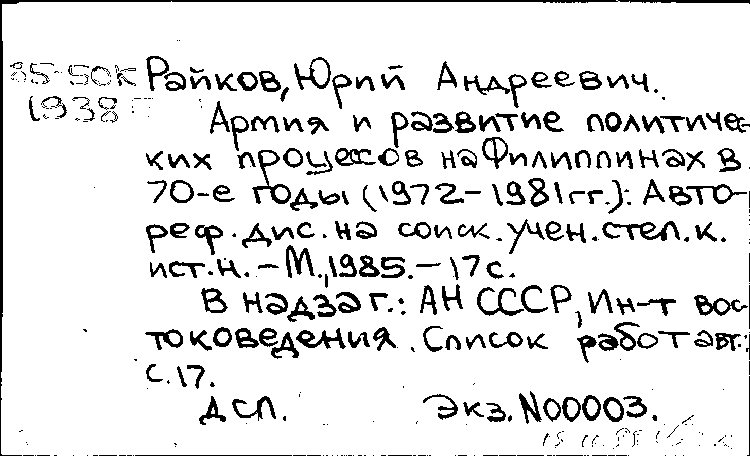 85-50К Райков, Юрий Андреевич.
1938
Армия и развитие политичес-
ких процессов на Филиппинах в
70-е годы (1972-1981гг.): Авто-
реф. дис. на соиск. учен. степ. к.
ист. н. - М., 1985. - 17 с.
В надзаг.: АН СССР, Ин-т вос-
токоведения. Список работ авт.:
с. 17.
ДСП. Экз. N00003.